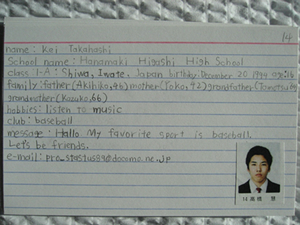 14
name: Kei Takahashi
School name: Hanamaki Higashi High School
class: 1-A: Shiwa, Iwate, Japan birthday: December 20 1994
family: father (Akihiko, 46) mother (Yoko, 42) grandfather
grandmother (Kazuko, 66)
hobbies: listen to music
club: baseball
message: Hallo. My favorite sport is baseball.
Let's be friends.
e-mail:
高橋 慧